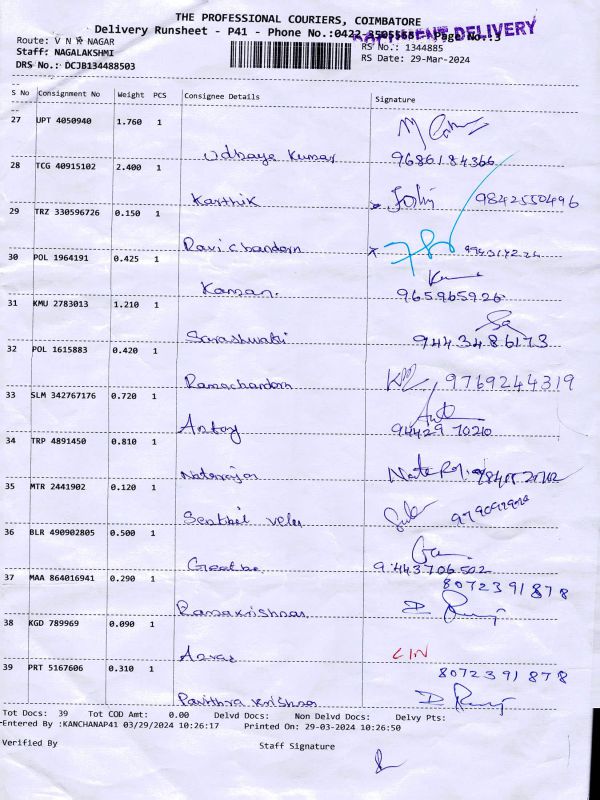 THE PROFESSIONAL COURIERS, COIMBATORE
Delivery Runsheet - P41 - Phone No.:0422-3505568 Page No.:3
DELIVERY
Route: V N R NAGAR
RS No.: 1344885
Staff: NAGALAKSHMI
RS Date: 29-Mar-2024
DRS No.: DCJB134488503
S No Consignment No Weight PCS Consignee Details Signature
27 UPT 4050940 1.760 1
Udhaya Kumar 9686184366
28 TCG 40915102 2.400 1
Karthik 9842550496
29 TRZ 330596726 0.150 1
Ravichandorn
30 POL 1964191 0.425 1
Kannan. 965965926
31 KMU 2783013 1.210 1
Saraswathi 9443486173
32 POL 1615883 0.420 1
Ramachandorn 9769244319
33 SLM 342767176 0.720 1
Antoy 9442970210
34 TRP 4891450 0.810 1
Natarajan
35 MTR 2441902 0.120 1
Senthil velu
36 BLR 490902805 0.500 1
Geetha 9.443706502
37 MAA 864016941 0.290 1 8072391878
Ramakrishnan
38 KGD 789969 0.090 1
LIN
39 PRT 5167606 0.310 1 8072391878
Pavithra Krishnan
Tot Docs: 39 Tot COD Amt: 0.00 Delvd Docs: Non Delvd Docs: Delvy Pts:
Entered By :KANCHANAP41 03/29/2024 10:26:17 Printed On: 29-03-2024 10:26:50
Verified By Staff Signature